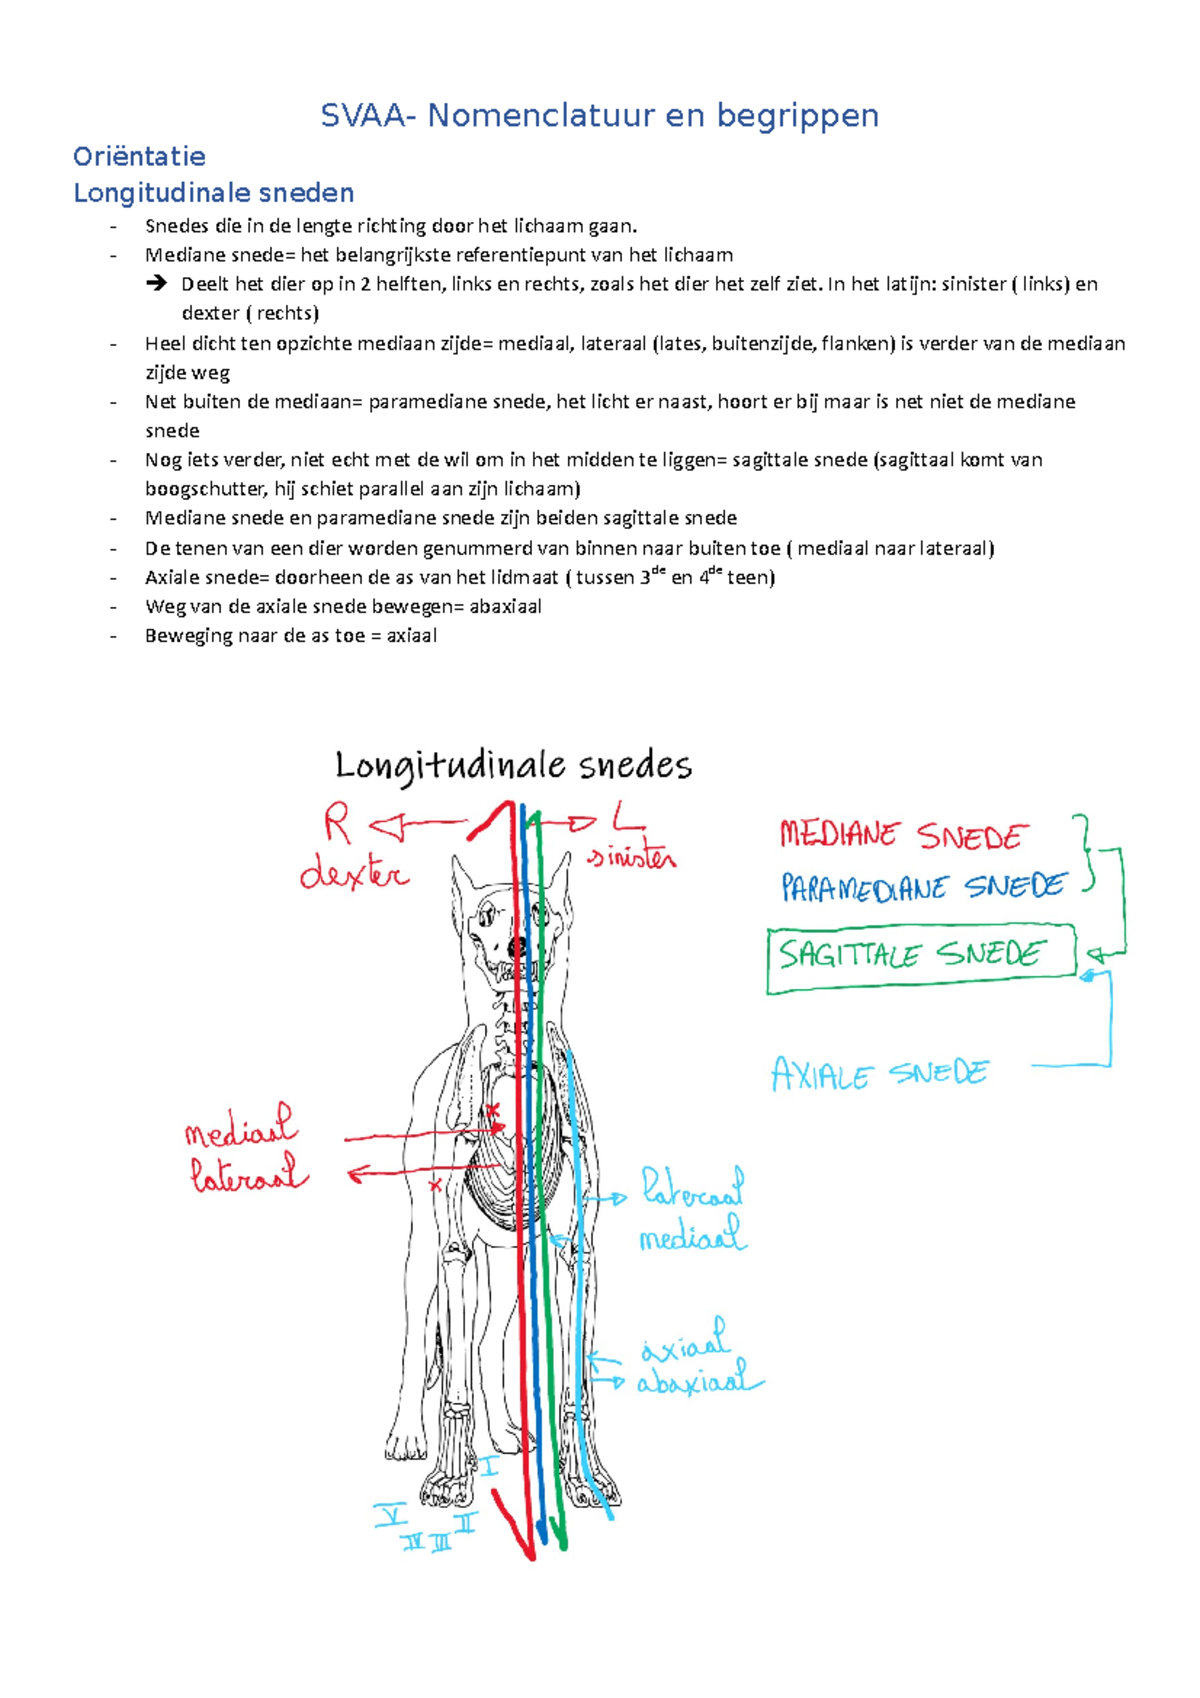 SVAA- Nomenclatuur en begrippen
Oriëntatie
Longitudinale sneden
- Snedes die in de lengte richting door het lichaam gaan.
- Mediane snede= het belangrijkste referentiepunt van het lichaam
➔ Deelt het dier op in 2 helften, links en rechts, zoals het dier het zelf ziet. In het latijn: sinister ( links) en
dexter ( rechts)
- Heel dicht ten opzichte mediaan zijde= mediaal, lateraal (lates, buitenzijde, flanken) is verder van de mediaan
zijde weg
- Net buiten de mediaan= paramediane snede, het licht er naast, hoort er bij maar is net niet de mediane
snede
- Nog iets verder, niet echt met de wil om in het midden te liggen= sagittale snede (sagittaal komt van
boogschutter, hij schiet parallel aan zijn lichaam)
- Mediane snede en paramediane snede zijn beiden sagittale snede
- De tenen van een dier worden genummerd van binnen naar buiten toe ( mediaal naar lateraal)
- Axiale snede= doorheen de as van het lidmaat ( tussen 3de en 4de teen)
- Weg van de axiale snede bewegen= abaxiaal
- Beweging naar de as toe = axiaal
Longitudinale snedes
R L
dexter sinister
MEDIANE SNEDE
PARAMEDIANE SNEDE
SAGITTALE SNEDE
AXIALE SNEDE
mediaal
lateraal
lateraal
mediaal
axiaal
abaxiaal
I
V IV III II